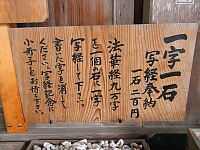 一字一石
写経奉納
一石 二百円
法華経九万字
を一個の石に一字
写経して下さい。
書いた字を消して
ください。写経記念に
小冊子をお待ち下さい。